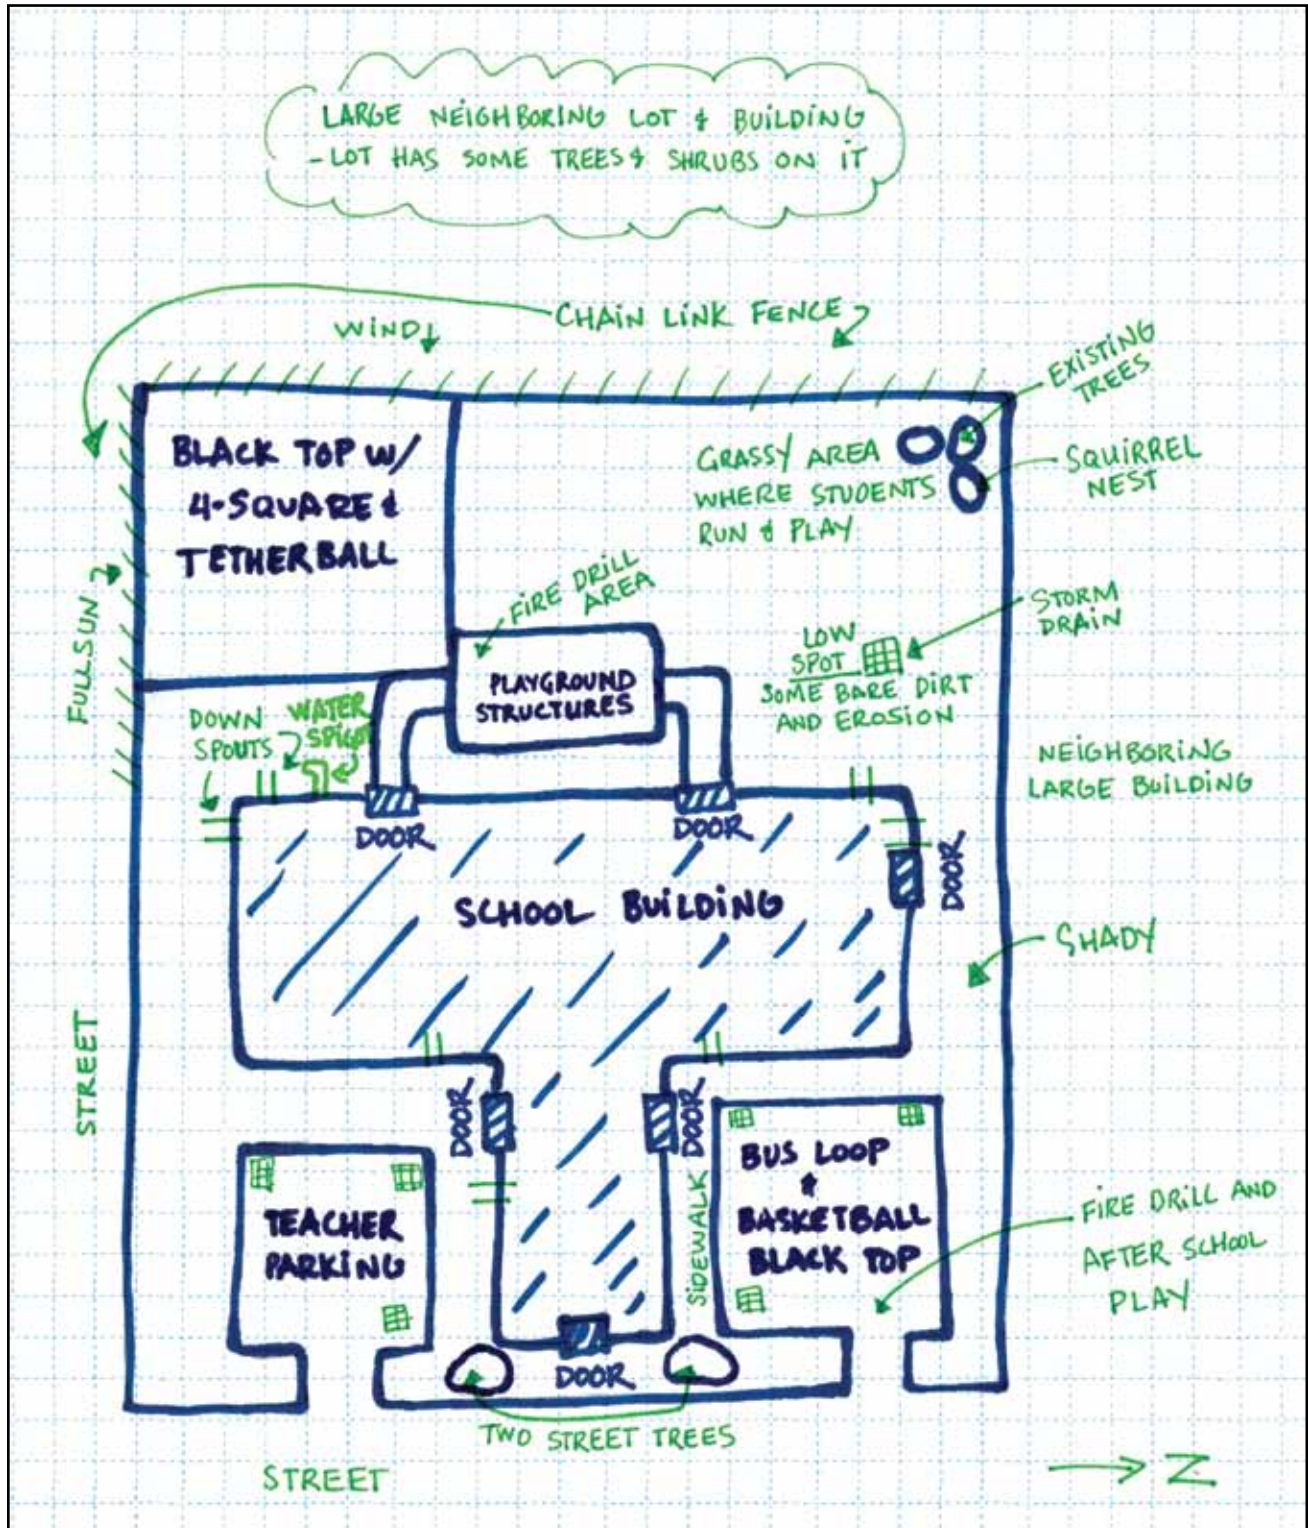 LARGE NEIGHBORING LOT & BUILDING
- LOT HAS SOME TREES & SHRUBS ON IT
CHAIN LINK FENCE
WIND
EXISTING
TREES
BLACK TOP W/
4-SQUARE &
TETHERBALL
GRASSY AREA
WHERE STUDENTS
RUN & PLAY
SQUIRREL
NEST
FULL SUN
FIRE DRILL
AREA
STORM
DRAIN
LOW
SPOT
SOME BARE DIRT
AND EROSION
PLAYGROUND
STRUCTURES
DOWN
SPOUTS
WATER
SPIGOT
NEIGHBORING
LARGE BUILDING
DOOR
DOOR
DOOR
SCHOOL BUILDING
SHADY
STREET
DOOR
DOOR
SIDEWALK
TEACHER
PARKING
BUS LOOP
&
BASKETBALL
BLACK TOP
FIRE DRILL AND
AFTER SCHOOL
PLAY
DOOR
TWO STREET TREES
STREET
N